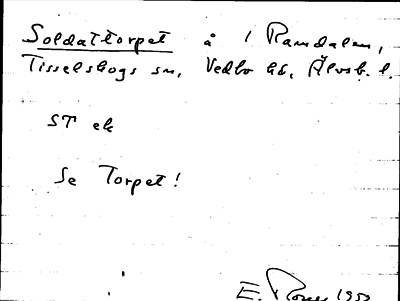 Soldattorpet å 1 Ramdalen,
Tisselskogs sn, Vedbo hd, Älvsb. l.
ST ek
Se Torpet!
E.